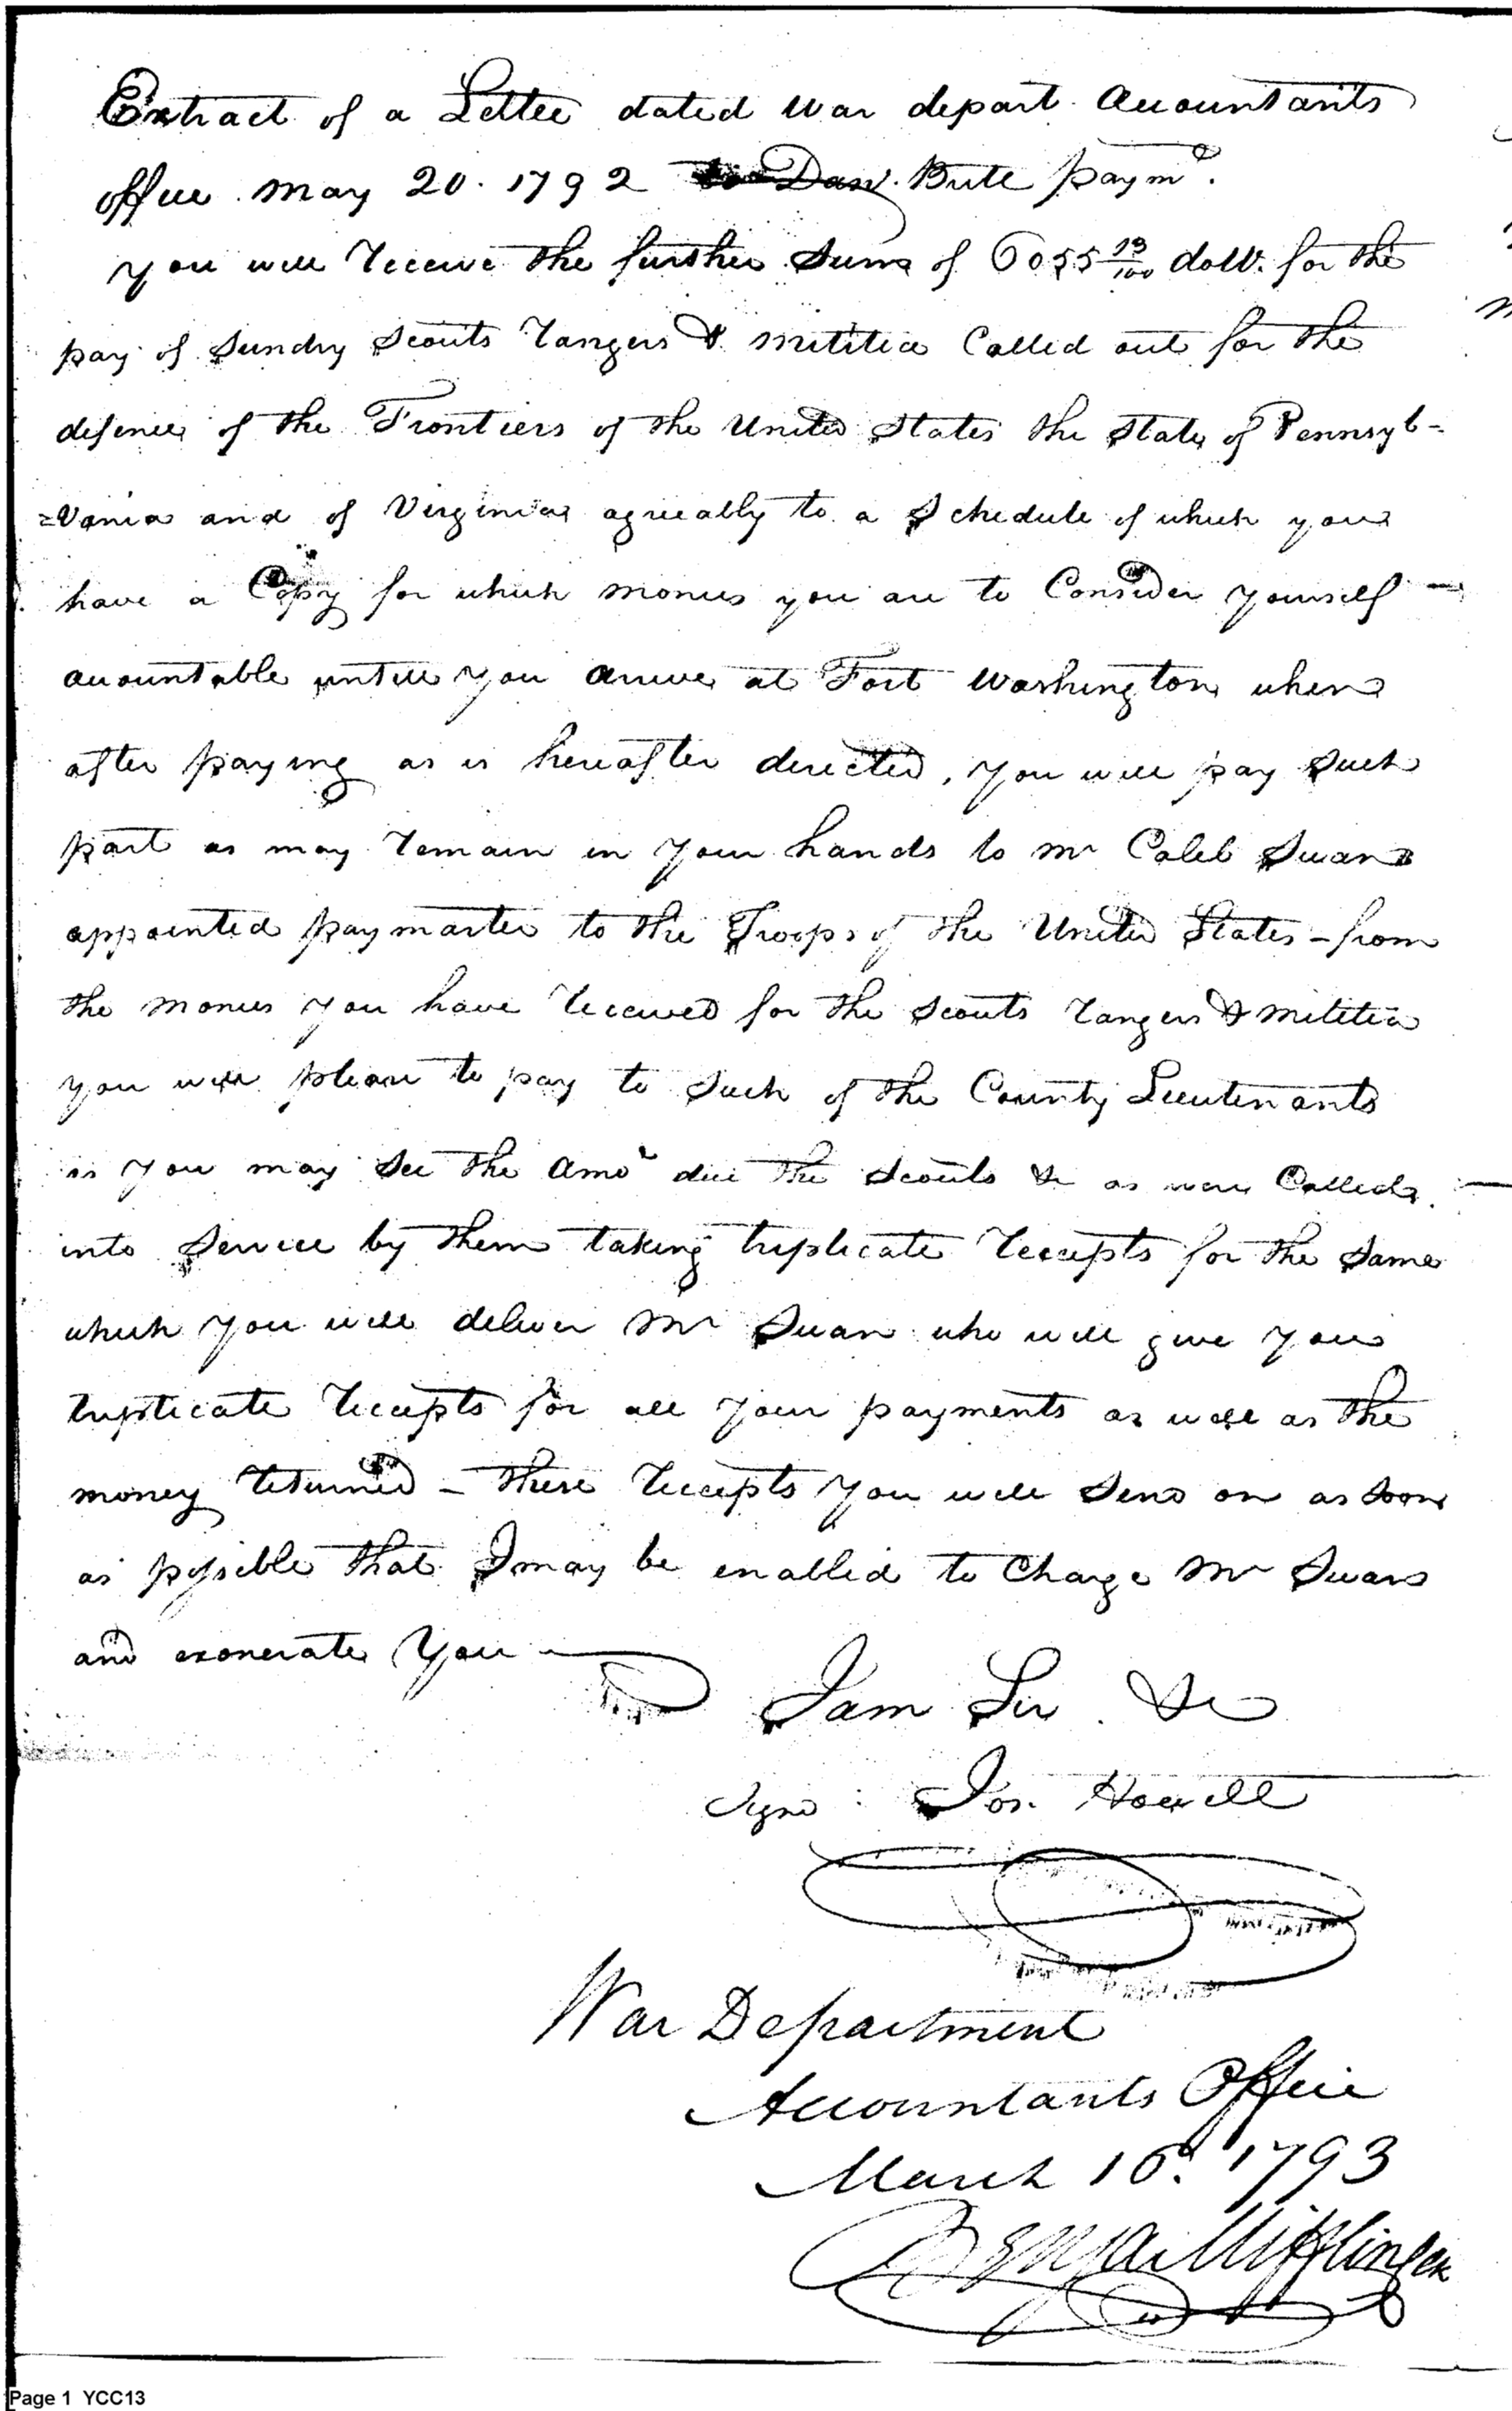 Extract of a Letter dated War depart. Accountants
office May 20. 1792 to Danl. Britt paymr.
You will receive the further Sum of 6055 13/100 dolls. for the
pay of Sundry Scouts Rangers & Militia Called out for the
defence of the Frontiers of the United States the State of Pennsyl-
=vania and of Virginia agreeably to a Schedule of which you
have a Copy for which monies you are to Consider yourself —
accountable untill you arrive at Fort Washington when
after paying as is hereafter directed, you will pay Such
part as may remain in your hands to Mr Caleb Swan
appointed paymaster to the Troops of the United States – from
the monies you have received for the Scouts Rangers & Militia
you will please to pay to Such of the County Lieutenants
as you may See the Amot due the Scouts &c as were Called —
into Service by them taking triplicate receipts for the Same
which you will deliver Mr Swan who will give you
triplicate receipts for all your payments as well as the
money returned – these receipts you will Send on as Soon
as possible that I may be enabled to Charge Mr Swan
and exonerate You —
I am Sir. &c
Signd : Jos. Howell
War Department
Accountants Office
March 16. 1793
Page 1 YCC13